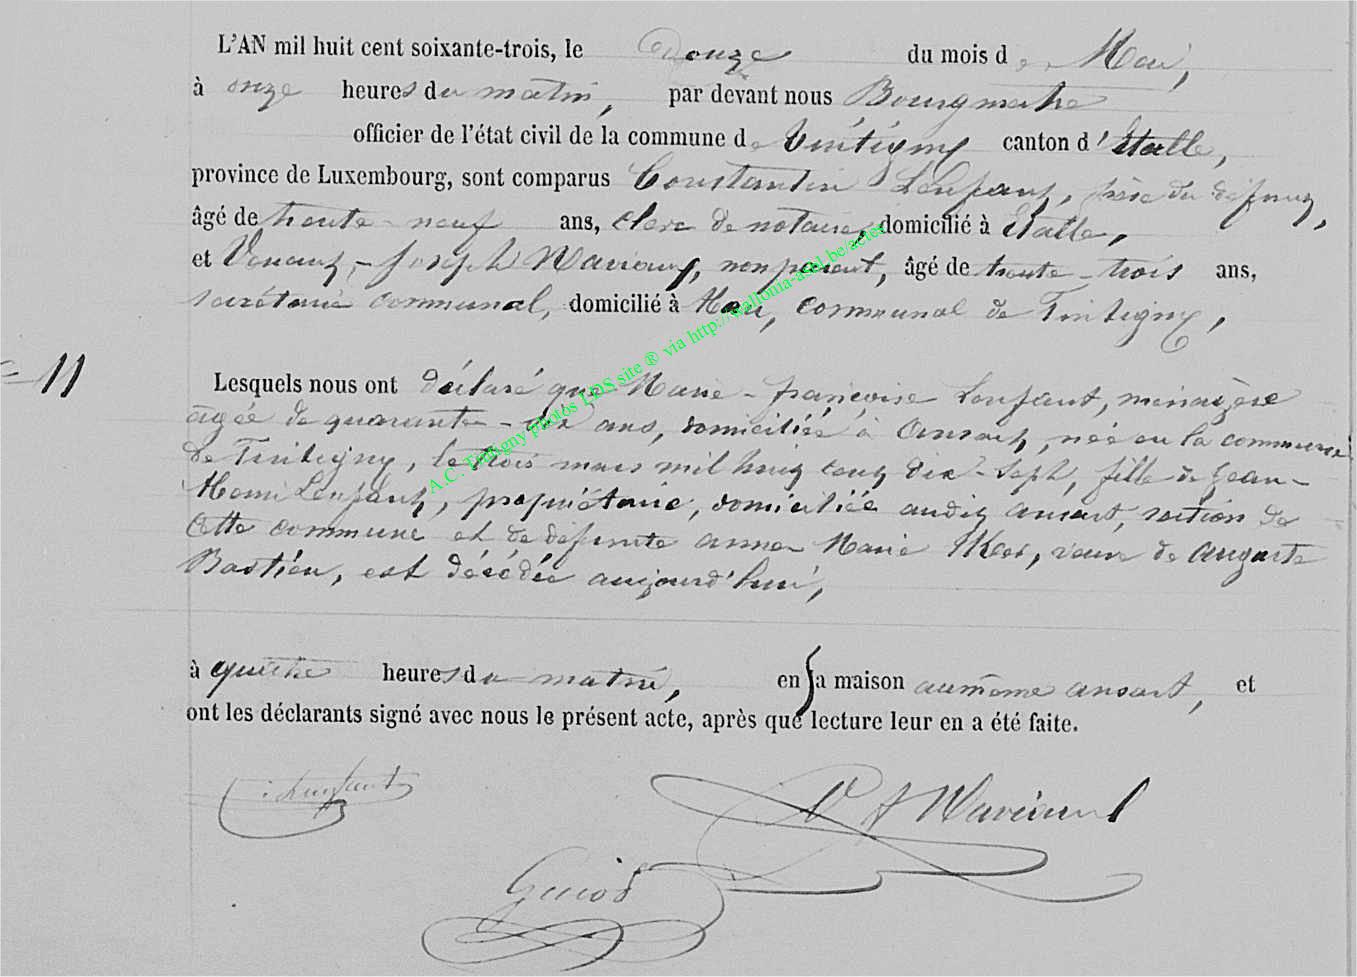 L'AN mil huit cent soixante-trois, le Douze du mois de Mai,
à onze heures du matin, par devant nous Bourgmestre
officier de l'état civil de la commune de Tintigny canton d'Etalle,
province de Luxembourg, sont comparus Constantin Lenfant, frère du défunt,
âgé de trente-neuf ans, clerc de notaire, domicilié à Etalle,
et Venant-Joseph Waviaux, non parent, âgé de trente-trois ans,
secrétaire communal, domicilié à Han, communal de Tintigny,
11
Lesquels nous ont déclaré que Marie-françoise Lenfant, ménagère
âgée de quarante-six ans, domiciliée à Ansart, née en la commune
de Tintigny, le trois mars mil huit cent dix-sept, fille de Jean-
Henri Lenfant, propriétaire, domiciliée audit ansart, section de
cette commune et de défunte anne-Marie, veuve de Auguste
Bastien, est décédée aujourd'hui,
à quatre heures du matin, en sa maison au même ansart, et
ont les déclarants signé avec nous le présent acte, après que lecture leur en a été faite.
Lenfant
V J Waviaux
Guiot
A.C. Tintigny photos LDS site ® via http://wallonia-asbl.be/actes